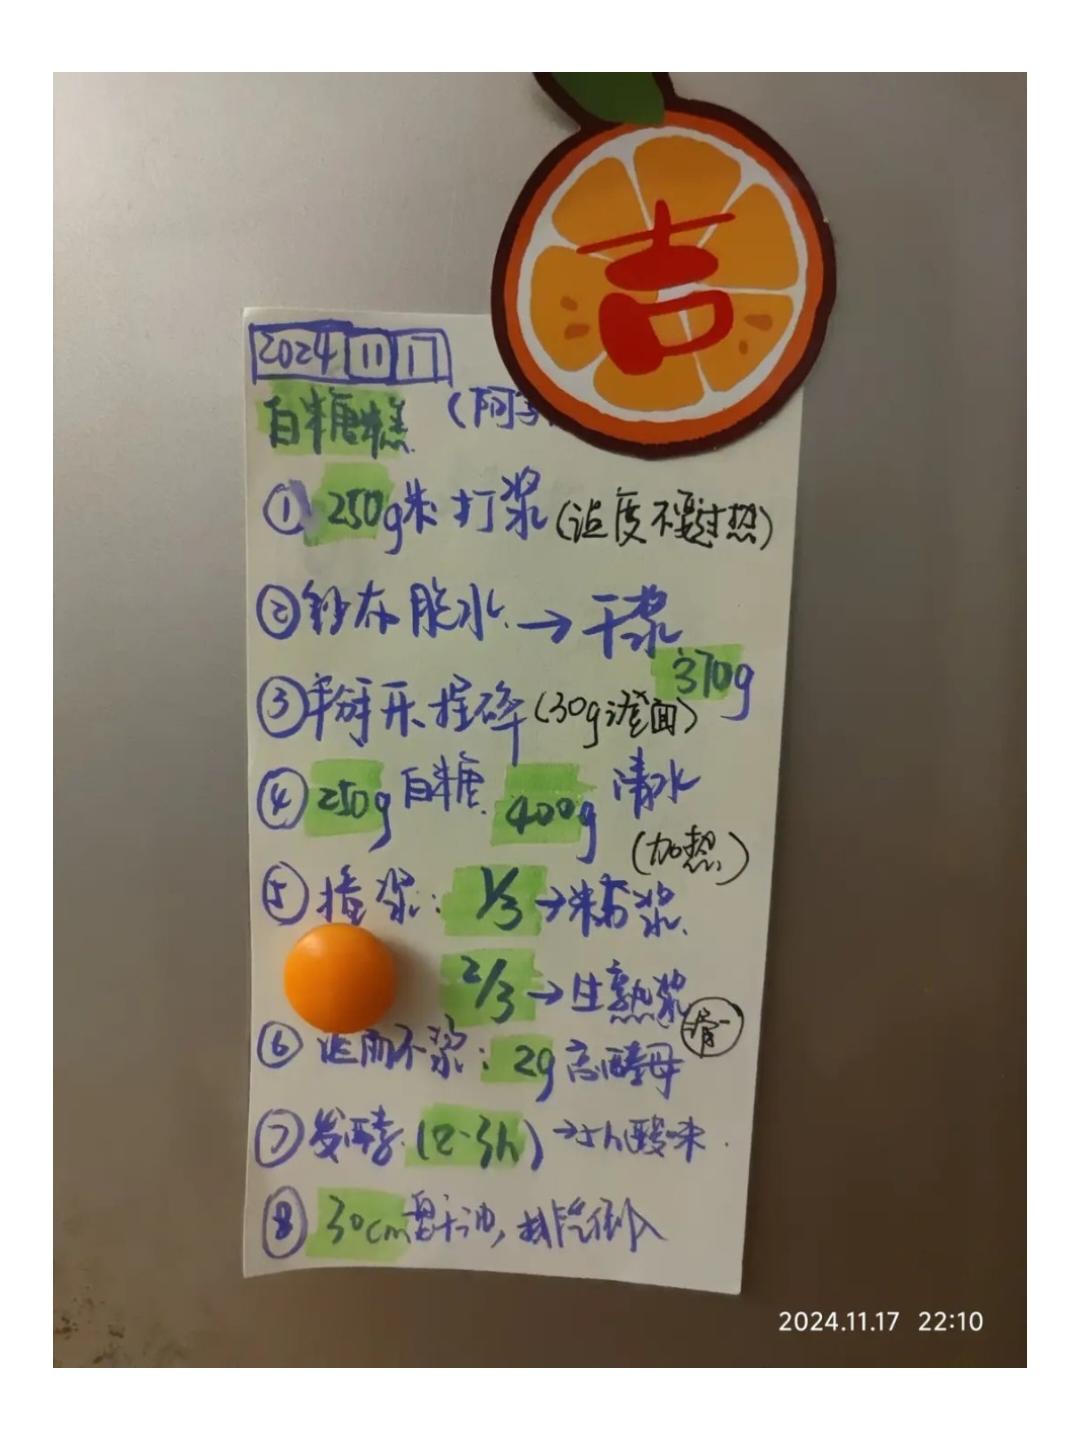 吉
2024 11 17
白糖糕 (阿
① 250g米 打浆 (温度不要过热)
② 纱布脱水 → 干浆
370g
③ 掰开捏碎 (30g澄面)
④ 250g 白糖 400g 清水
(加热)
⑤ 撞浆: 1/3 →稀浆
2/3 →生熟浆
⑥ 浆: 2g 高酵母
⑦ 发酵 (2-3h) → 酸味
⑧ 30cm 油, 排气倒入
2024.11.17 22:10